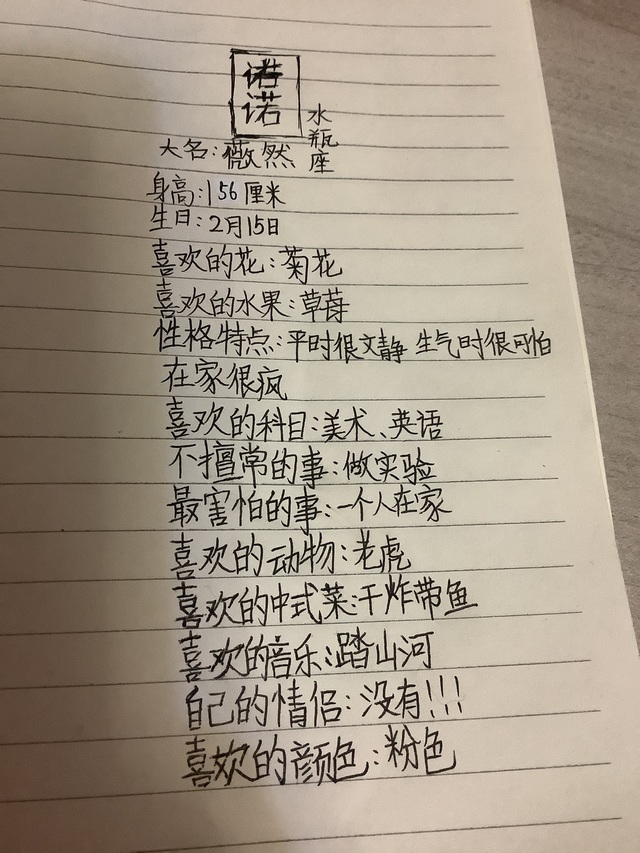 诺
诺
水瓶座
大名:薇然
身高:156厘米
生日:2月15日
喜欢的花:菊花
喜欢的水果:草莓
性格特点:平时很文静 生气时很可怕
在家很疯
喜欢的科目:美术、英语
不擅常的事:做实验
最害怕的事:一个人在家
喜欢的动物:老虎
喜欢的中式菜:干炸带鱼
喜欢的音乐:踏山河
自己的情侣:没有!!!
喜欢的颜色:粉色